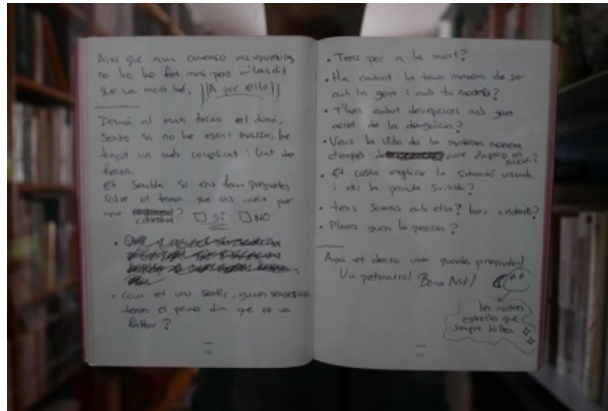 Així que avui començo acupuntura,
no ho he fet mai però m'has dit
que va molt bé. ||A por ello||
Demà al matí tecno el dimi,
Sento si no he escrit massa, he
tingut un més complicat i lent de
feina.
Et sembla si ens fem preguntes
sobre el tema que ens uneix per
? □ SÍ □ NO
• Com et vas sentir, quines sensacions
tenies el primer dia que et va
?
• Tens por a la mort?
• Ha canviat la teva manera de ser
amb la gent i amb tu mateix?
• T'has endut decepcions amb gent
arrel de la desgràcia?
• Veus la vida de la mateixa manera
després
• Et costa explicar la situació viscuda
i dir la paraula suïcidi?
• Tens somnis amb ella? bons o dolents?
• Plores quan la penses?
Aquí et deixo unes quantes preguntes!
Un petonarro! Bona Nit!
les nostres
estrelles que
sempre brillen